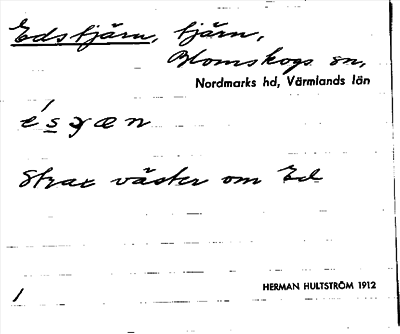 Edstjärn, tjärn,
Blomskogs sn,
Nordmarks hd, Värmlands län
e´sχæn
Strax väster om Ed
1
HERMAN HULTSTRÖM 1912